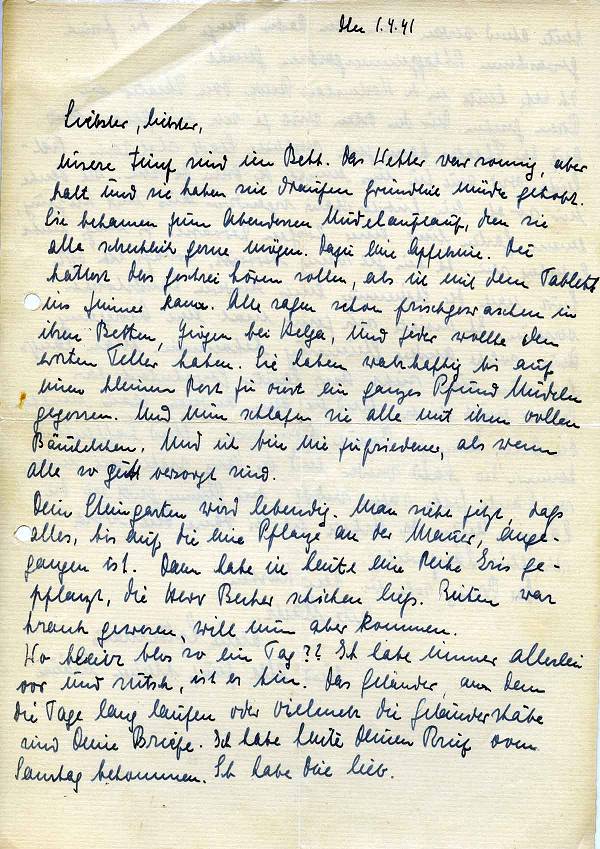 Den 1.4.41
Liebster, liebster,
unsere Fünf sind im Bett. Das Wetter war sonnig, aber
kalt und sie haben sie draußen gründlich müde getobt.
Sie bekamen zum Abendessen Nudelauflauf, den sie
alle schrecklich gerne mögen. Dazu eine Apfelsine. Du
hättest das geschrei hören sollen, als ich mit dem Tablett
ins Zimmer kam. Alle sagen schon frischgewaschen in
ihren Betten, Jürgen bei Helga, und jeder wollte den
ersten Teller haben. Sie haben wahrhaftig bis auf
einen kleinen Rest für mich ein ganzes Pfund Nudeln
gegessen. Und nun schlafen sie alle mit ihren vollen
Bäuchelchen. Und ich bin nie zufriedener, als wenn
alle so gut versorgt sind.
Dein Steingarten wird lebendig. Man sieht jetzt, dass
alles, bis auf die eine Pflanze an der Mauer, ange-
gangen ist. Dann habe ich heute eine Reihe Iris ge-
pflanzt, die Herr Becher schicken ließ. war
krank gewesen, will nun aber kommen.
Wo bleibt blos so ein Tag?? Ich habe immer allerlei
vor und rutsch, ist er hin. Das Geländer, an dem
die Tage lang laufen oder vielmehr die Geländerstäbe
sind Deine Briefe. Ich habe heute Deinen Brief vom
Samstag bekommen. Ich habe Dich lieb.